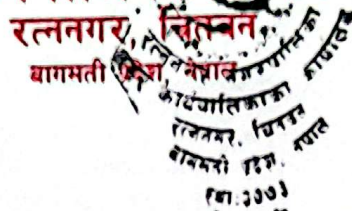 रत्ननगर, चितवन
बागमती प्रदेश, नेपाल
कार्यपालिकाको
रत्ननगर, चितवन
बागमती प्रदेश, नेपाल